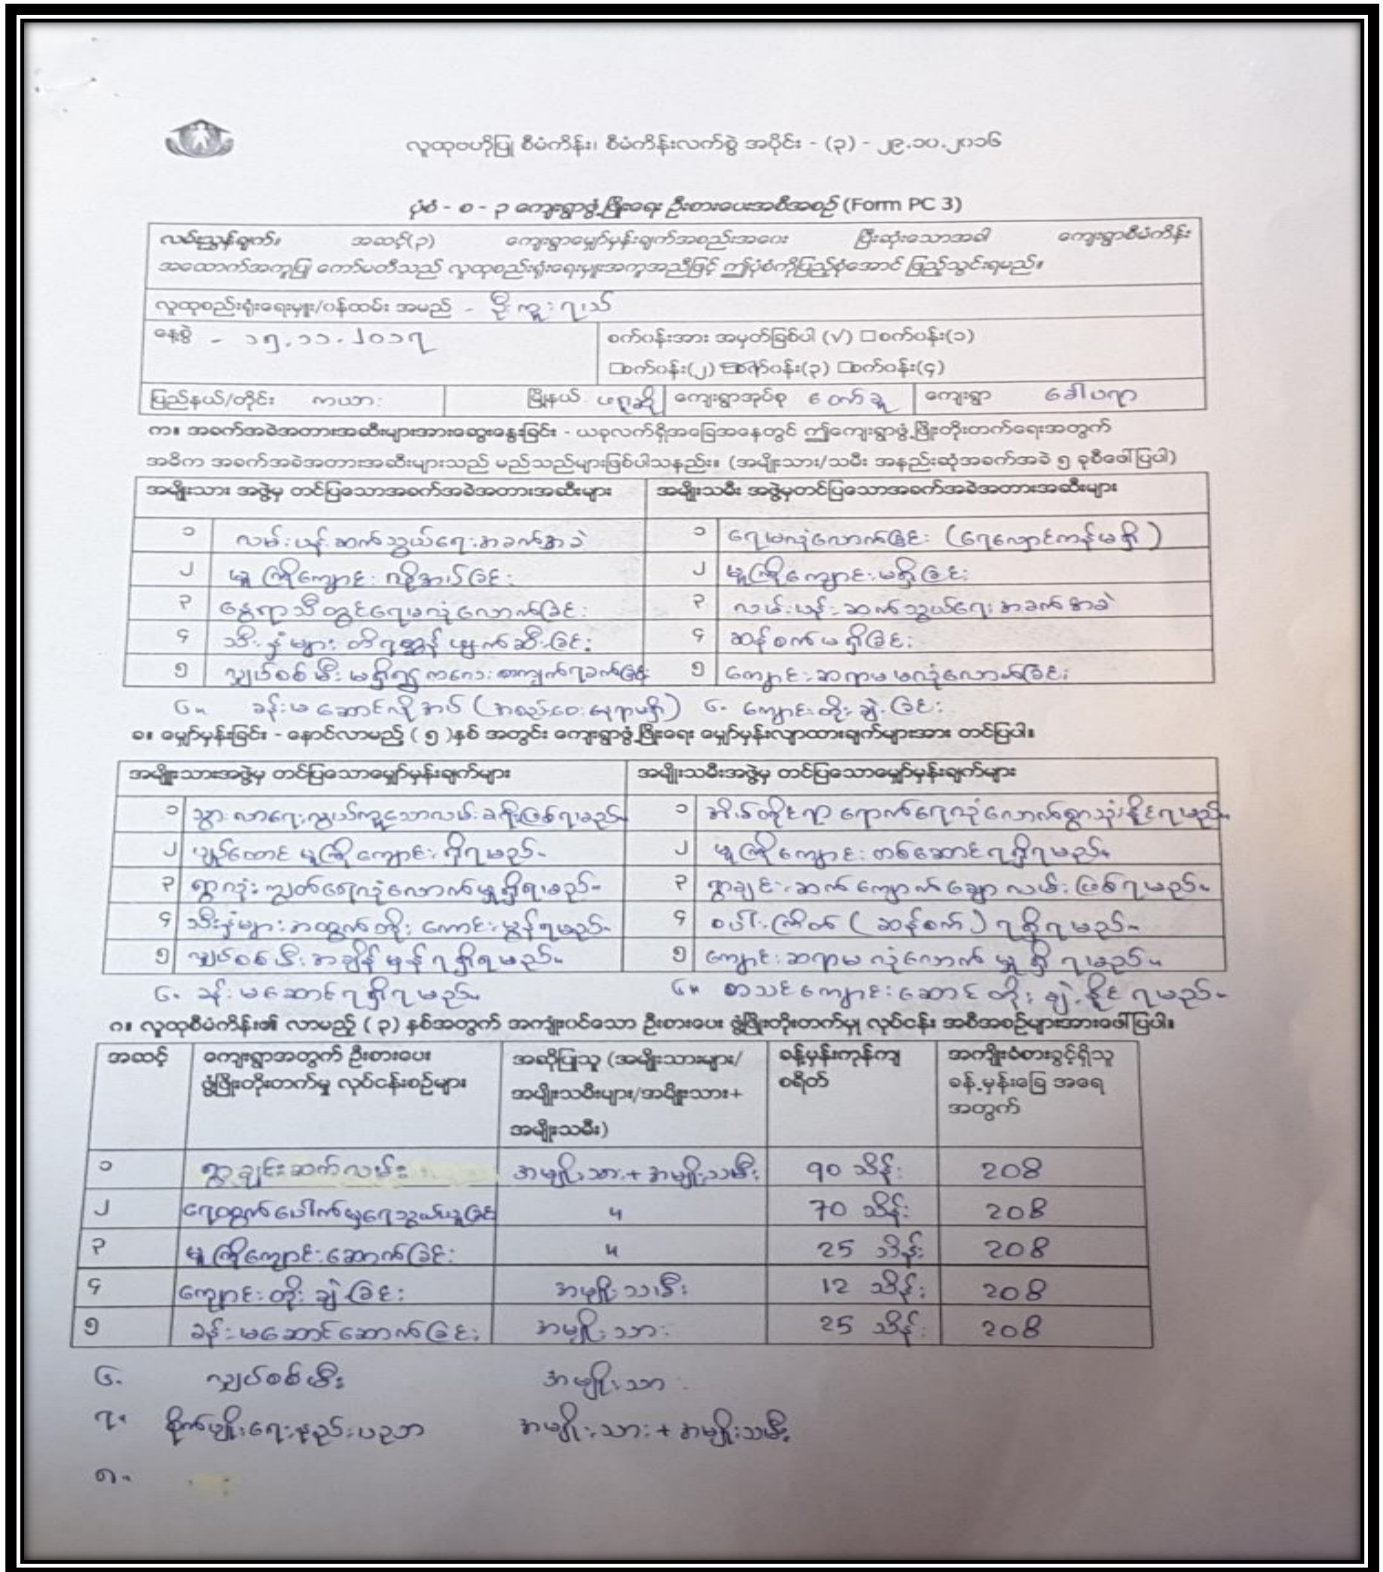 လူထုဗဟိုပြု စီမံကိန်း၊ စီမံကိန်းလက်စွဲ အပိုင်း - (၃) - ၂၉.၁၀.၂၀၁၆
ပုံစံ - စ - ၃ ကျေးရွာဖွံ့ဖြိုးရေး ဦးစားပေးအစီအစဉ် (Form PC 3)
လမ်းညွှန်ချက်။ အဆင့်(၃) ကျေးရွာမျှော်မှန်းချက်အစည်းအဝေး ပြီးဆုံးသောအခါ ကျေးရွာစီမံကိန်း
အထောက်အကူပြု ကော်မတီသည် လူထုစည်းရုံးရေးမှူးအကူအညီဖြင့် ဤပုံစံကိုပြည့်စုံအောင် ဖြည့်သွင်းရမည်။
လူထုစည်းရုံးရေးမှူး/ဝန်ထမ်း အမည် - ဦးကူးရယ်
နေ့စွဲ - ၁၅.၁၁.၂၀၁၇ စက်ဝန်းအား အမှတ်ခြစ်ပါ (√) □စက်ဝန်း(၁)
□စက်ဝန်း(၂) □စက်ဝန်း(၃) □စက်ဝန်း(၄)
ပြည်နယ်/တိုင်း ကယား မြို့နယ် ဖရူဆို ကျေးရွာအုပ်စု ကျေးရွာ
က။ အခက်အခဲအတားအဆီးများအားဆွေးနွေးခြင်း - ယခုလက်ရှိအခြေအနေတွင် ဤကျေးရွာဖွံ့ဖြိုးတိုးတက်ရေးအတွက်
အဓိက အခက်အခဲအတားအဆီးများသည် မည်သည်များဖြစ်ပါသနည်း။ (အမျိုးသား/သမီး အနည်းဆုံးအခက်အခဲ ၅ ခုစီဖေါ်ပြပါ)
အမျိုးသား အဖွဲ့မှ တင်ပြသောအခက်အခဲအတားအဆီးများ အမျိုးသမီး အဖွဲ့မှတင်ပြသောအခက်အခဲအတားအဆီးများ
၁ လမ်းပန်းဆက်သွယ်ရေးအခက်အခဲ ၁ ရေမလုံလောက်ခြင်း (ရေလှောင်ကန်မရှိ)
၂ မူကြိုကျောင်း လိုအပ်ခြင်း ၂ မူကြိုကျောင်းမရှိခြင်း
၃ နွေရာသီတွင်ရေမလုံလောက်ခြင်း ၃ လမ်းပန်းဆက်သွယ်ရေးအခက်အခဲ
၄ သီးနှံများ တိရစ္ဆာန် ဖျက်ဆီးခြင်း ၄ ဆန်စက်မရှိခြင်း
၅ လျှပ်စစ်မီး မရှိ၍ ကလေးစာကျက်ရခက်ခြင်း ၅ ကျောင်းဆရာမ မလုံလောက်ခြင်း
၆။ ခန်းမဆောင်လိုအပ် (အစည်းဝေးနေရာမရှိ) ၆။ ကျောင်းတိုးချဲ့ခြင်း
ခ။ မျှော်မှန်းခြင်း - နောင်လာမည့် (၅)နှစ် အတွင်း ကျေးရွာဖွံ့ဖြိုးရေး မျှော်မှန်းလျာထားချက်များအား တင်ပြပါ။
အမျိုးသားအဖွဲ့မှ တင်ပြသောမျှော်မှန်းချက်များ အမျိုးသမီးအဖွဲ့မှ တင်ပြသောမျှော်မှန်းချက်များ
၁ သွားလာရေးလွယ်ကူသောလမ်းခရီးဖြစ်ရမည်။ ၁ အိမ်တိုင်ရာရောက်ရေလုံလောက်စွာသုံးနိုင်ရမည်။
၂ ပျဉ်ထောင် မူကြိုကျောင်း ရှိရမည်။ ၂ မူကြိုကျောင်း တစ်ဆောင်ရရှိရမည်။
၃ ရွာလုံးကျွတ်ရေလုံလောက်မှုရှိရမည်။ ၃ ရွာချင်းဆက်ကျောက်ချောလမ်းဖြစ်ရမည်။
၄ သီးနှံများအထွက်တိုး ကောင်းမွန်ရမည်။ ၄ စပါးကြိတ် (ဆန်စက်) ရရှိရမည်။
၅ လျှပ်စစ်မီးအချိန်မှန်ရရှိရမည်။ ၅ ကျောင်းဆရာမ လုံလောက်မှုရှိရမည်။
၆။ ခန်းမဆောင်ရရှိရမည်။ ၆။ စာသင်ကျောင်းဆောင်တိုးချဲ့နိုင်ရမည်။
ဂ။ လူထုစီမံကိန်း၏ လာမည့် (၃) နှစ်အတွက် အကျုံးဝင်သော ဦးစားပေး ဖွံ့ဖြိုးတိုးတက်မှု လုပ်ငန်း အစီအစဉ်များအားဖေါ်ပြပါ။
အဆင့် ကျေးရွာအတွက် ဦးစားပေး ဖွံ့ဖြိုးတိုးတက်မှု လုပ်ငန်းစဉ်များ အဆိုပြုသူ (အမျိုးသားများ/ အမျိုးသမီးများ/အမျိုးသား+ အမျိုးသမီး) ခန့်မှန်းကုန်ကျ စရိတ် အကျိုးခံစားခွင့်ရှိသူ ခန့်မှန်းခြေ အရေ အတွက်
၁ ရွာချင်းဆက်လမ်း အမျိုးသား+အမျိုးသမီး 90 သိန်း 208
၂ ရေထွက်ပေါက်မှရေသွယ်ယူခြင်း ၎ 70 သိန်း 208
၃ မူကြိုကျောင်းဆောက်ခြင်း ၎ 25 သိန်း 208
၄ ကျောင်းတိုးချဲ့ခြင်း အမျိုးသမီး 12 သိန်း 208
၅ ခန်းမဆောင်ဆောက်ခြင်း အမျိုးသား 25 သိန်း 208
၆။ လျှပ်စစ်မီး အမျိုးသား
၇။ စိုက်ပျိုးရေးနည်းပညာ အမျိုးသား+အမျိုးသမီး
၈။